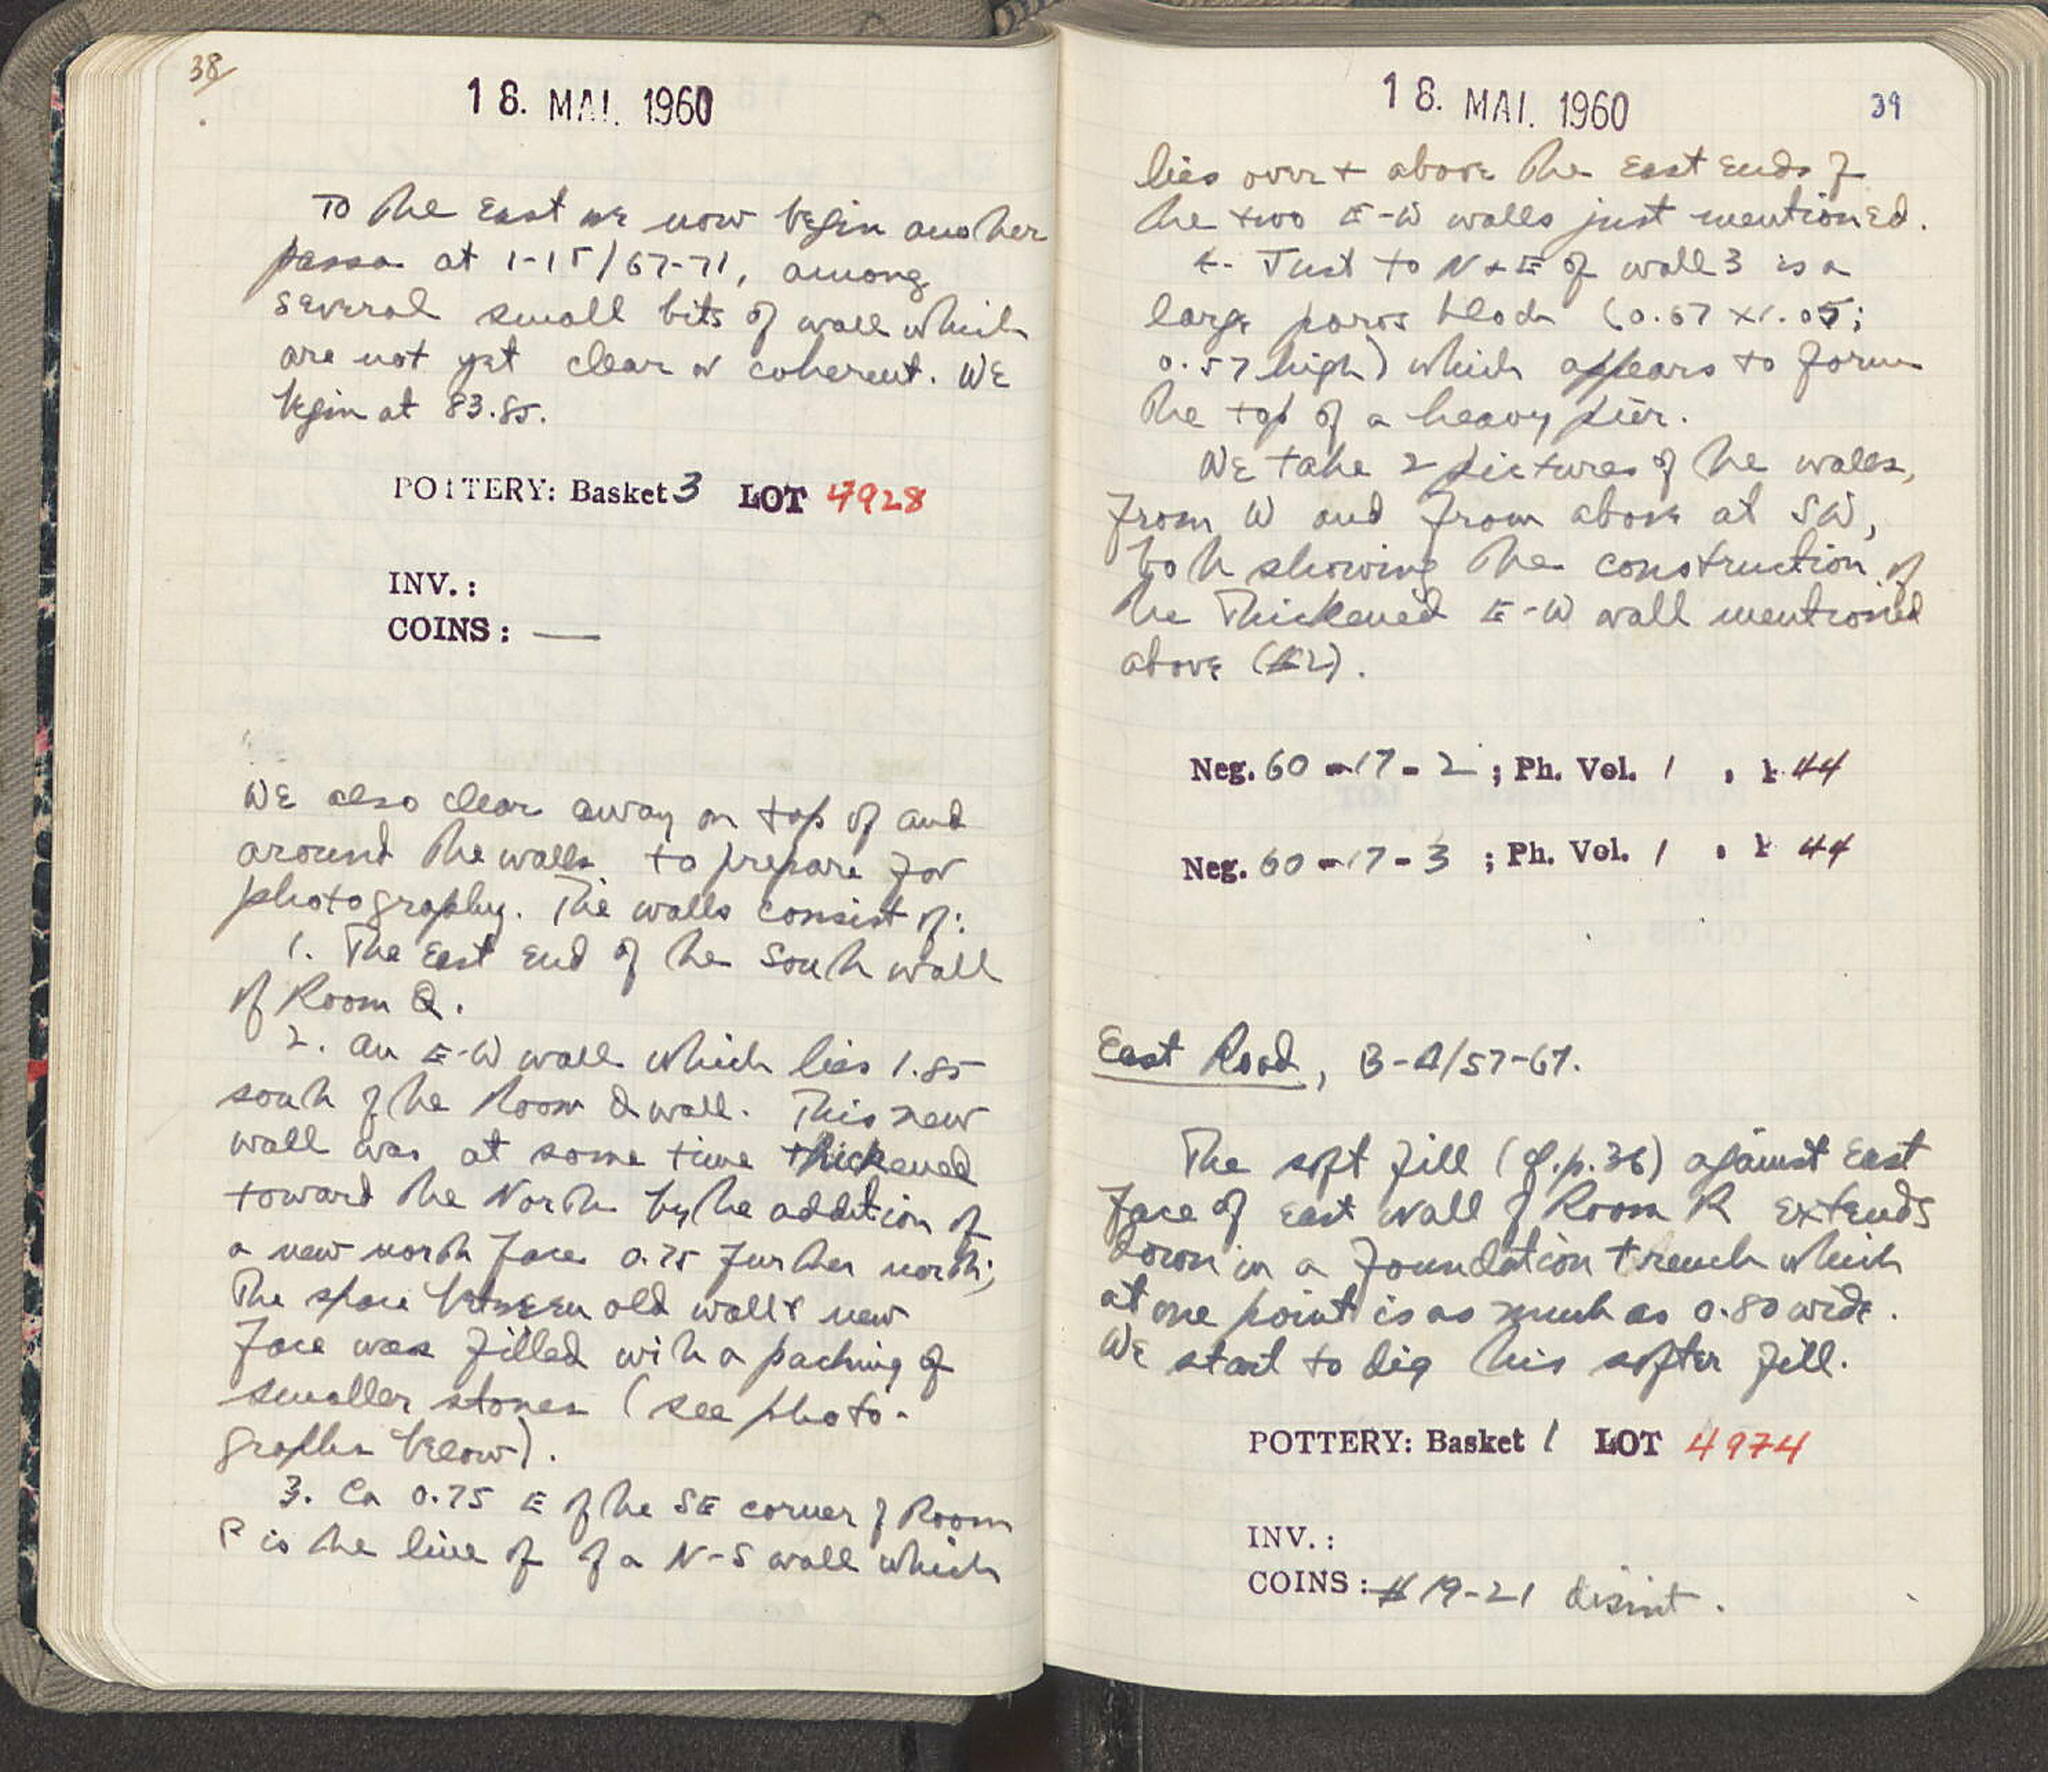 38
18. MAI. 1960
To the East we now begin another
passa at 1-15/67-71, among
several small bits of wall which
are not yet clear or coherent. We
begin at 83.85.
POTTERY: Basket 3 LOT 4928
INV.:
COINS: —
We also clear away on top of and
around the walls to prepare for
photography. The walls consist of:
1. The East end of the South wall
of Room Q.
2. An E-W wall which lies 1.85
south of the Room Q wall. This new
wall was at some time thickened
toward the North by the addition of
a new north face 0.75 further north;
The space between old wall & new
face was filled with a packing of
smaller stones (see photo-
graphs below).
3. Ca 0.75 E of the SE corner of Room
P is the line of of a N-S wall which
18. MAI. 1960
39
lies over + above the East ends of
the two E-W walls just mentioned.
4. Just to N & E of wall 3 is a
large poros block (0.67 x 1.05;
0.57 high) which appears to form
the top of a heavy pier.
We take 2 pictures of the walls,
from W and from above at SW,
both showing the construction of
the Thickened E-W wall mentioned
above (#2).
Neg. 60-17-2; Ph. Vol. 1, p. 44
Neg. 60-17-3; Ph. Vol. 1, p 44
East Road, B-Δ/57-67.
The soft fill (cf. p. 36) against East
Face of East Wall of Room R extends
down in a foundation trench which
at one point is as much as 0.80 wide.
We start to dig this softer fill.
POTTERY: Basket 1 LOT 4974
INV.:
COINS: # 19-21 disint.